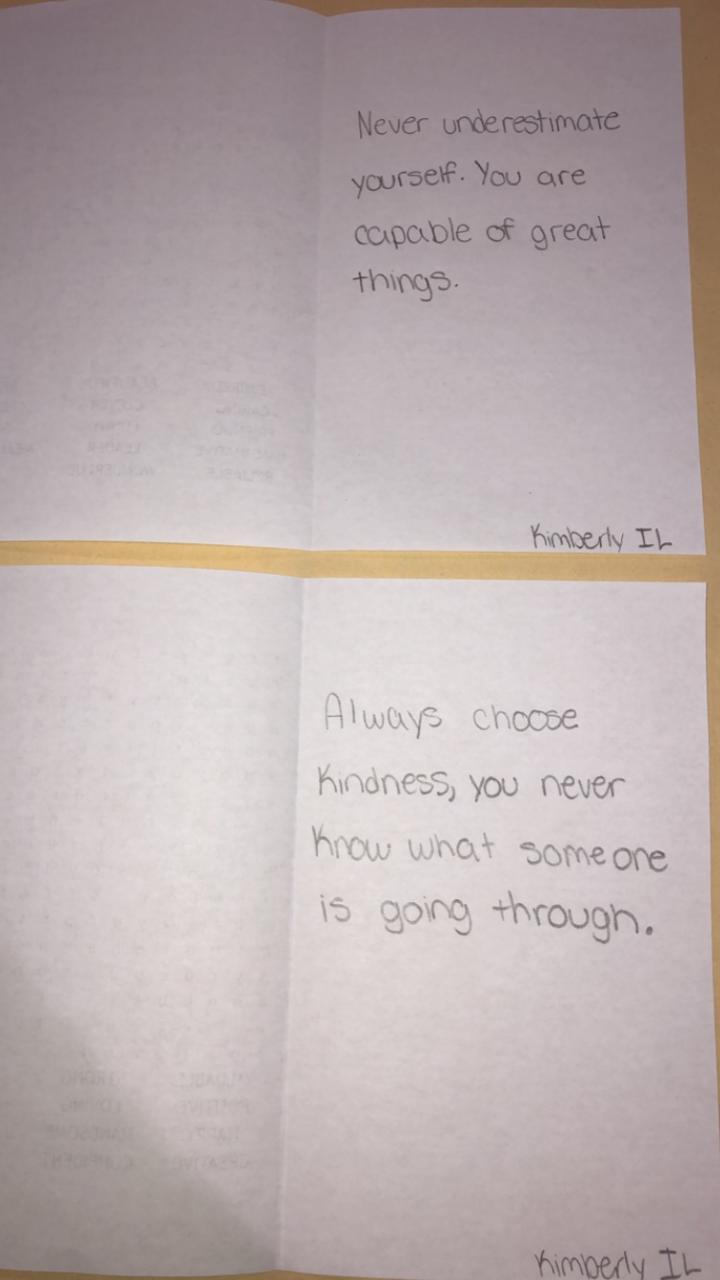 Never underestimate
yourself. You are
capable of great
things.
Kimberly IL
Always choose
kindness, you never
know what someone
is going through.
Kimberly IL